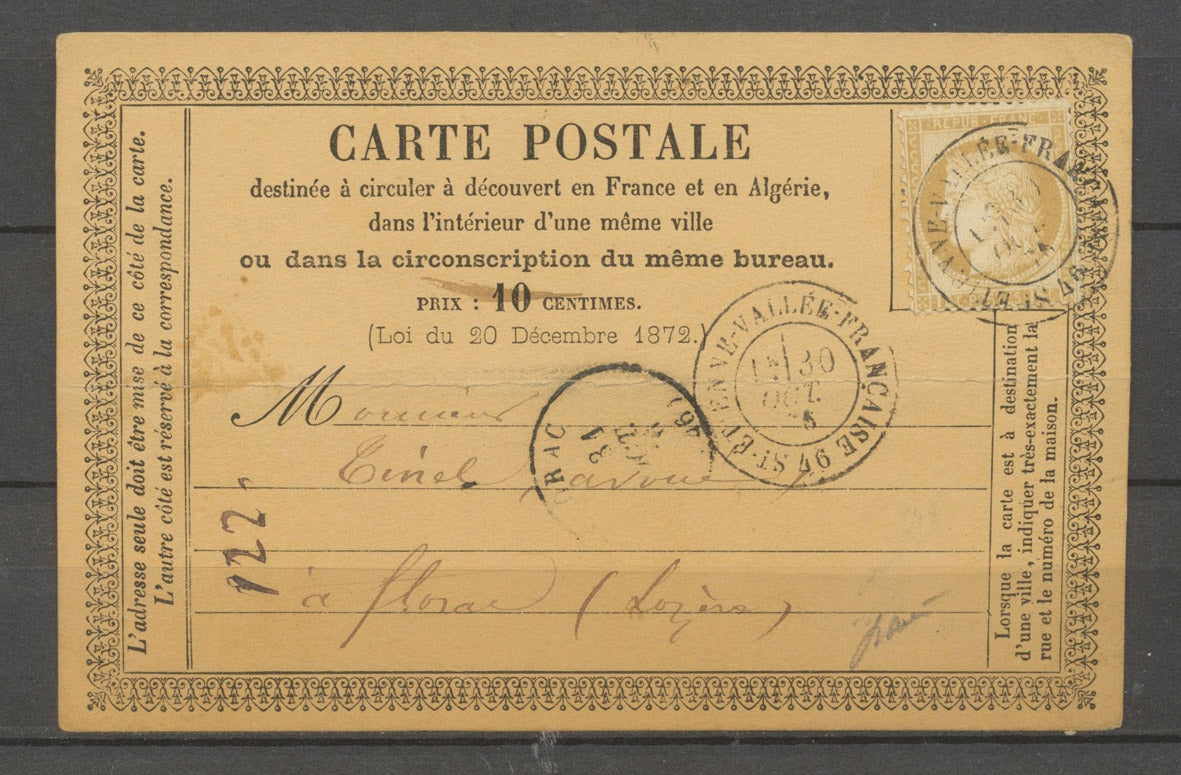 CARTE POSTALE
destinée à circuler à découvert en France et en Algérie,
dans l'intérieur d'une même ville
ou dans la circonscription du même bureau.
PRIX : 10 CENTIMES.
(Loi du 20 Décembre 1872.)
L'adresse seule doit être mise de ce côté de la carte.
L'autre côté est réservé à la correspondance.
REPUB FRANC
ST-ETIENNE-VALLÉE-FRANÇAISE 94
30
OCT.
Monsieur
Tinel avoué
à Florac (Lozère)
31
122
Lorsque la carte est à destination
d'une ville, indiquer très-exactement la
rue et le numéro de la maison.